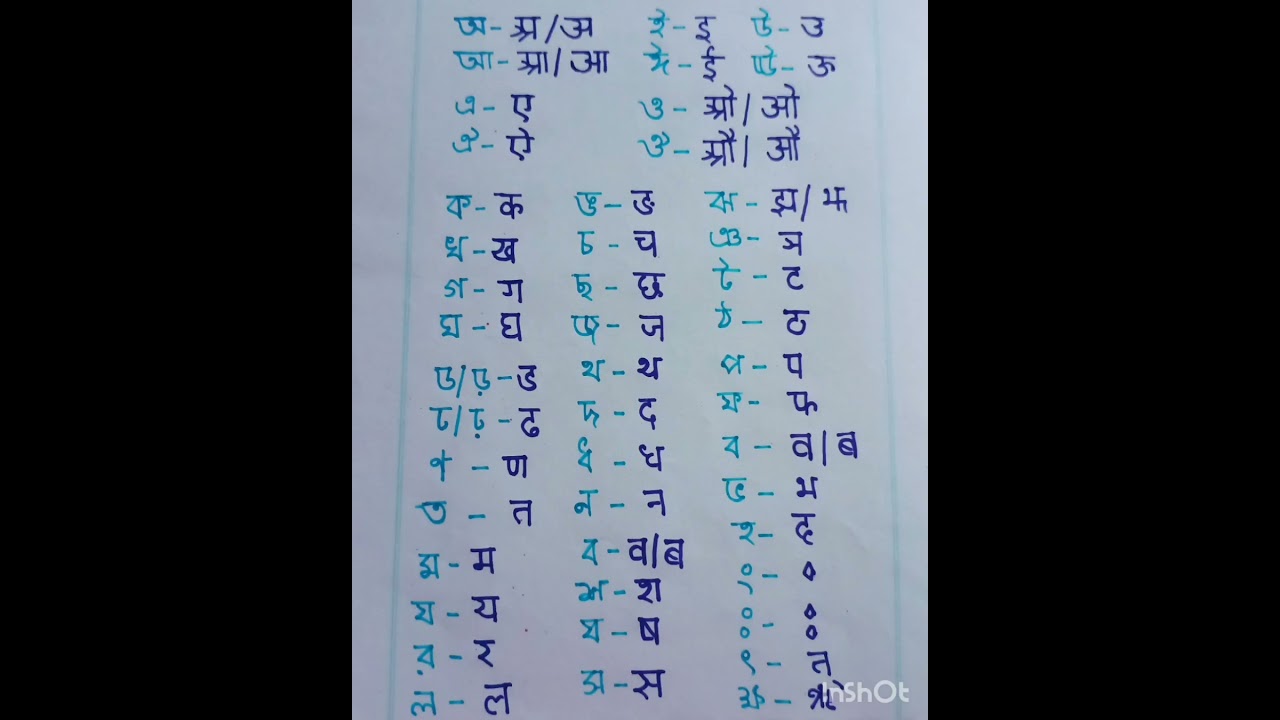 অ- प्र/अ ই - इ উ- उ
আ-প্রা/आ ঈ- ई ঊ- ऊ
এ- ए ও - ओ/ओ
ঐ- ऐ ঔ- औ/औ
ক- क ঙ- ङ ঝ - झ/झ
খ -ख চ - च ঞ- ञ
গ- ग ছ - छ ট - ट
ঘ - घ জ- ज ঠ - ठ
ড/ড় -ड থ- थ প - प
ঢ/ঢ় - ढ দ - द ফ- फ
ণ - ण ধ - ध ব - व/ब
ত - त ন - न ভ - भ
ম- म ব - व/ब হ- ह
য - य শ- श ং -
র - र ষ- ष ঃ-
ল - ल স- स ৎ - त्
ঋ - ऋ
InShOt